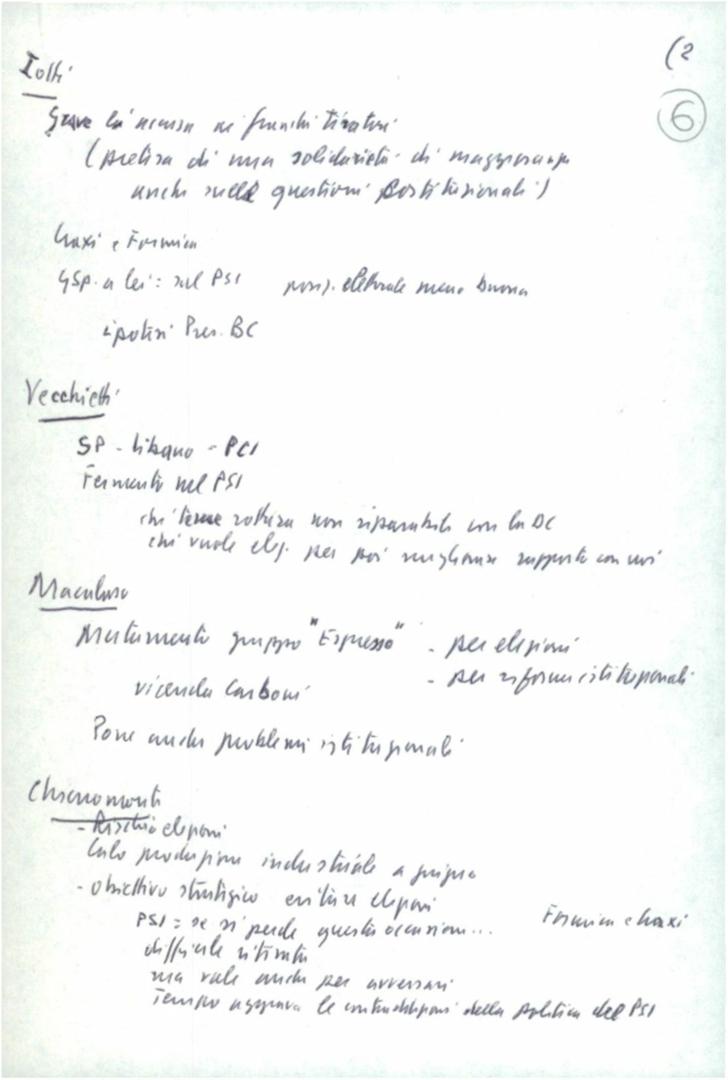 (2
6
Iotti
Grave la accusa ai franchi tiratori
(pretesa di una solidarietà di maggioranza
anche sulle questioni costituzionali)
Craxi e Formica
GSp. a lei: sul PSI posiz. elettorale meno buona
ipotesi Pres. BC
Vecchietti
SP - libano - PCI
Fermenti nel PSI
chi teme rottura non riparabile con la DC
chi vuole elez. per poi migliorare rapporto con noi
Macaluso
Mutamento gruppo "Espresso" - per elezioni
- per riforme istituzionali
vicenda Carboni
Pone anche problemi istituzionali
Chiaromonte
- Rischio elezioni
Calo produzione industriale a giugno
- obiettivo strategico evitare elezioni
PSI = se si perde questa occasione... Formica e Craxi
difficile
ma vale anche per avversari
Tempo aggrava le contraddizioni della politica del PSI